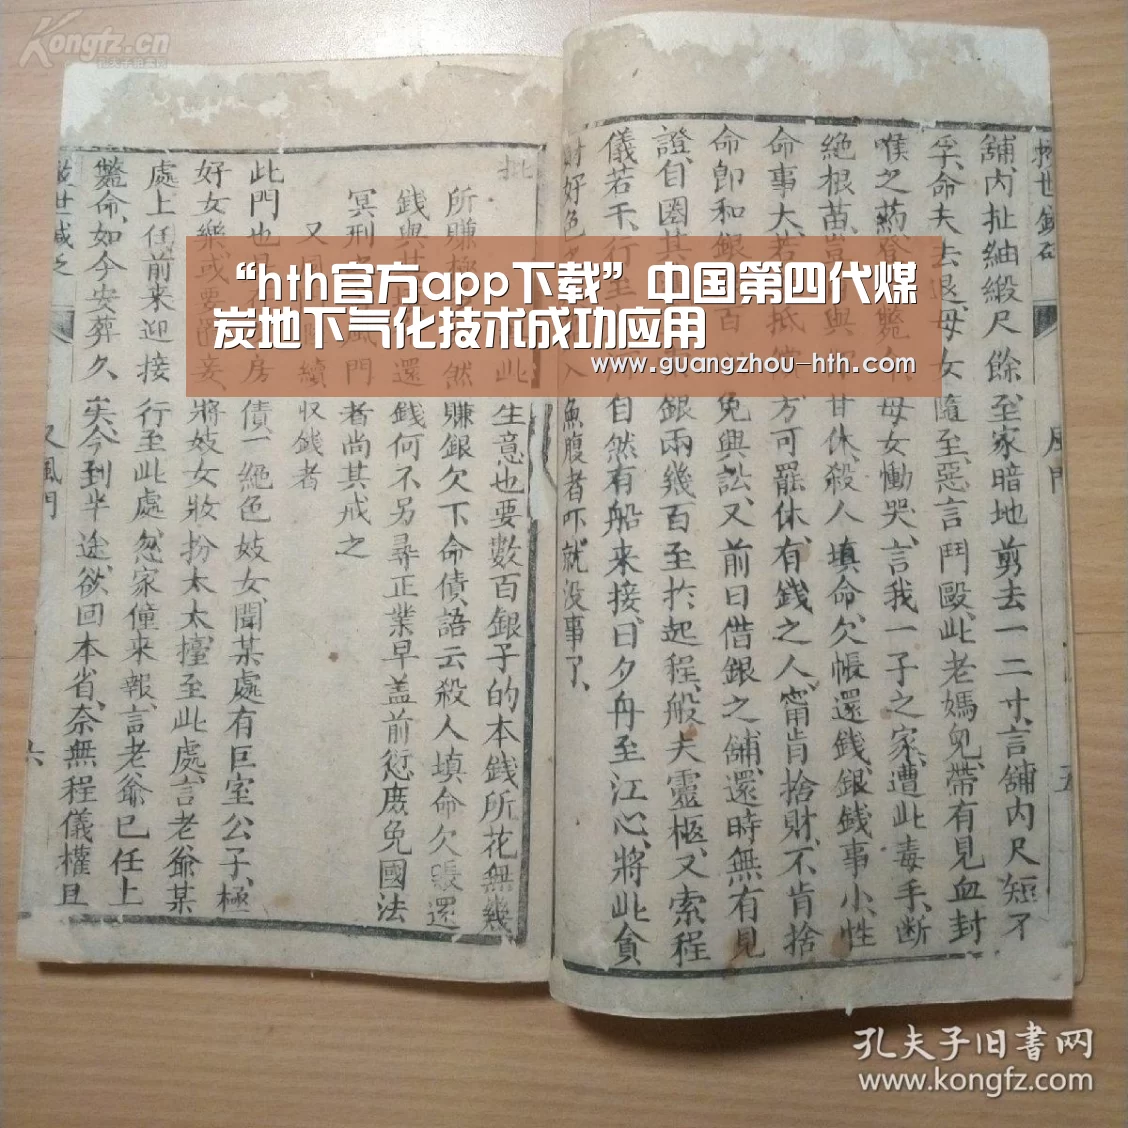 Kongfz.cn
孔夫子旧书网
“hth官方app下载”中国第四代煤
炭地下气化技术成功应用
www.guangzhou-hth.com
舖内扯紬緞尺餘、至家暗地剪去一二寸、言舖内尺短不
孚、命夫去退、母女隨至、惡言鬥毆、此老媽兒、帶有見血封
喉之葯、脊 斃 母女慟哭、言我一子之家、遭此毒手、斷
絕根苗、 與 甘休、殺人填命、欠帳還錢、銀錢事小、性
命事大、若 抵 方可罷休、有錢之人、甯肯捨財、不肯捨
命、即和銀 百 免與訟、又前日借銀之舖、還時無有見
證、自圈其 銀兩幾百、至於起程、般夫靈柩、又索程
儀若干、行至 自然有船来接、日夕舟至江心、將此貪
財好色 入魚腹者、吓就没事了、
批
此生意也要數百銀子的本錢、所花無幾、
所賺極 然賺銀欠下命債、語云殺人填命、欠賬還
錢、與其 還錢、何不另尋正業、早盖前愆、庶免國法
冥刑 風門者、尚其戒之
又風 續収錢者
此門也 房債一絕色妓女、聞某處有巨室公子、極
好女樂、或要 妾、將妓女妝扮太太、擡至此處、言老爺某
處上任、前来迎接、行至此處、忽家僮来報、言老爺已任上
斃命、如今安葬久矣、今到半途、欲回本省、奈無程儀、權且
又風門
六
風門
五
孔夫子旧書网
www.kongfz.com